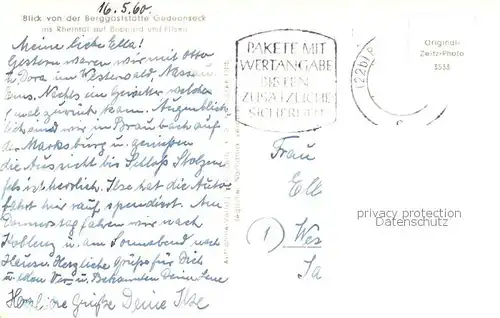 16.5.60.
Blick von der Berggaststätte Gedeonseck
ins Rheintal auf Boppard und Filsen
Meine liebe Ella!
Gestern waren wir mit Otto
u. Dora im Westerwald, Nassau
Ems. Nachts ein Gewitter welches
mal zurück kam. Augenblick
lich sind wir in Braubach auf
der Marksburg u. genießen
die Aussicht bis Schloß Stolzen
fels ist herrlich. Ilse hat die Auto
fahrt hier rauf spendiert. Am
Donnerstag fahren wir nach
Koblenz u. am Sonnabend nach
Hause. Herzliche Grüße für Dich
u. Bekannten Deine Lene
Herzliche Grüße Deine Ilse
PAKETE MIT
WERTANGABE
BIETEN
ZUSÄTZLICHE
SICHERHEIT
(22b)
Original-
Zeitz-Photo
3533
Frau
Ell
privacy protection
Datenschutz
(1) Wes